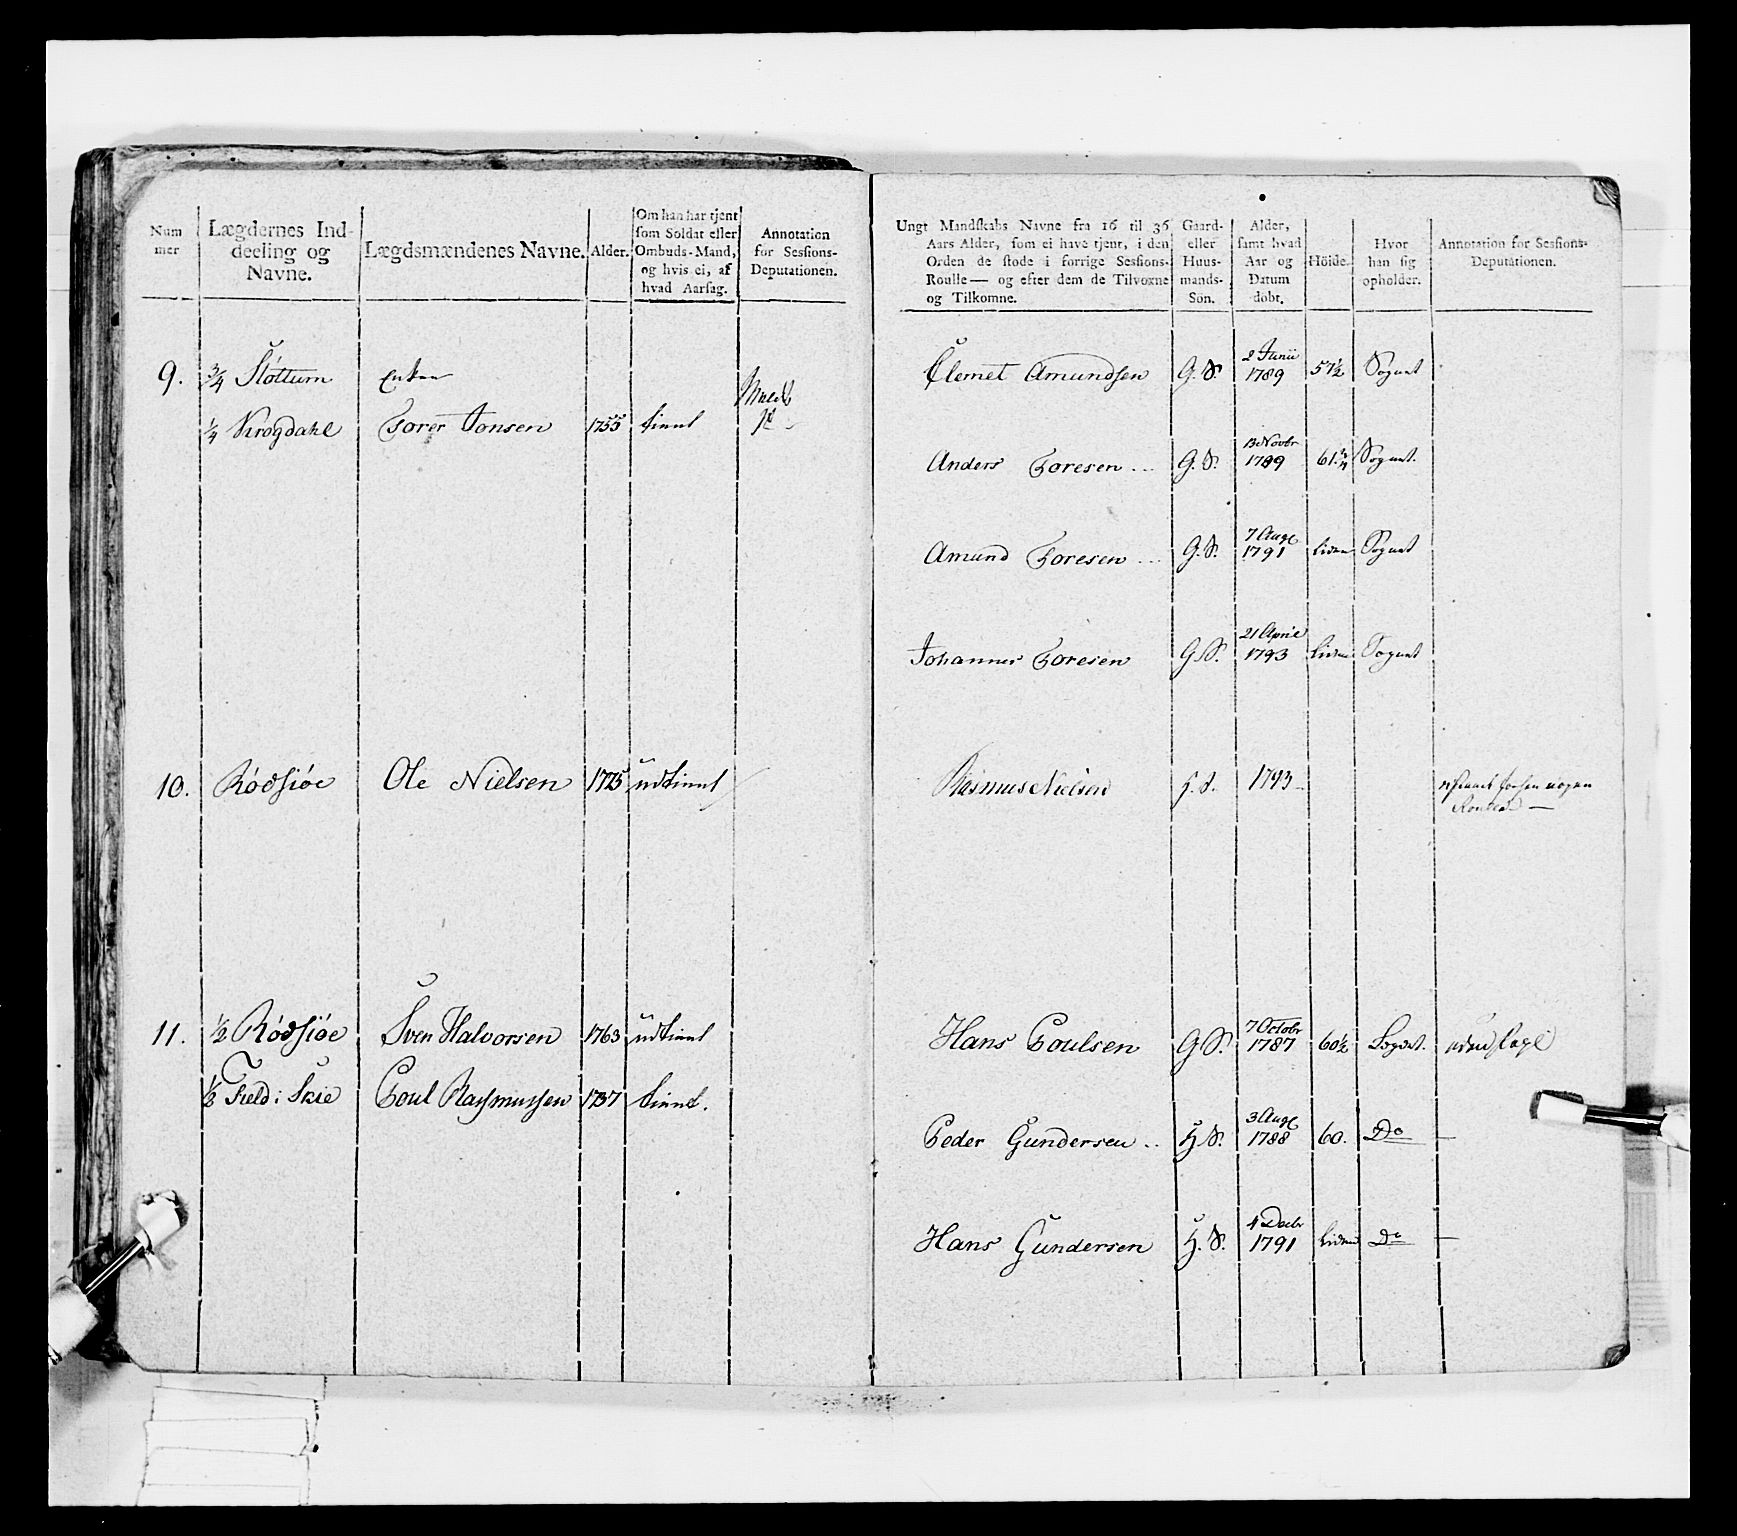 Num
mer
Lægdernes Ind-
deeling og
Navne.
Lægdsmændenes Navne.
Alder.
Om han har tjent
som Soldat eller
Ombuds-Mand,
og hvis ei, af
hvad Aarsag.
Annotation
for Sessions-
Deputationen.
9. ¾ Støttum Enken
¼ Krogdahl Torer Jonsen 1755 tient
10. Rødsiøe Ole Nielsen 1775 udtient
11. ½ Rødsiøe Sven Halvorsen 1763 udtient
½ Field i Skie Poul Rasmussen 1737 tient.
Ungt Mandskabs Navne fra 16 til 36
Aars Alder, som ei have tjent, i den
Orden de stode i forrige Sessions-
Roulle— og efter dem de Tilvoxne
og Tilkomne.
Gaard-
eller
Huus-
mands-
Søn.
Alder,
samt hvad
Aar og
Datum
døbt.
Höide.
Hvor
han sig
opholder.
Annotation for Sessions-
Deputationen.
2 Junii
Clemet Amundsen G. S. 1789 57½ Sognet
13 Novbr
Anders Toresen G. S. 1789 61.¾ Sognet.
7 Aug
Amund Toresen G. S. 1791 liden Sognet
21 April
Johannes Toresen G S. 1793 liden Sognet
Rasmus Nielsen 1793
7 Octobr
Hans Poulsen G S. 1787 60½ Sognet.
3 Aug
Peder Gundersen H. S. 1788 60. Do —
4 Decbr
Hans Gundersen H. S. 1791 liden Do —